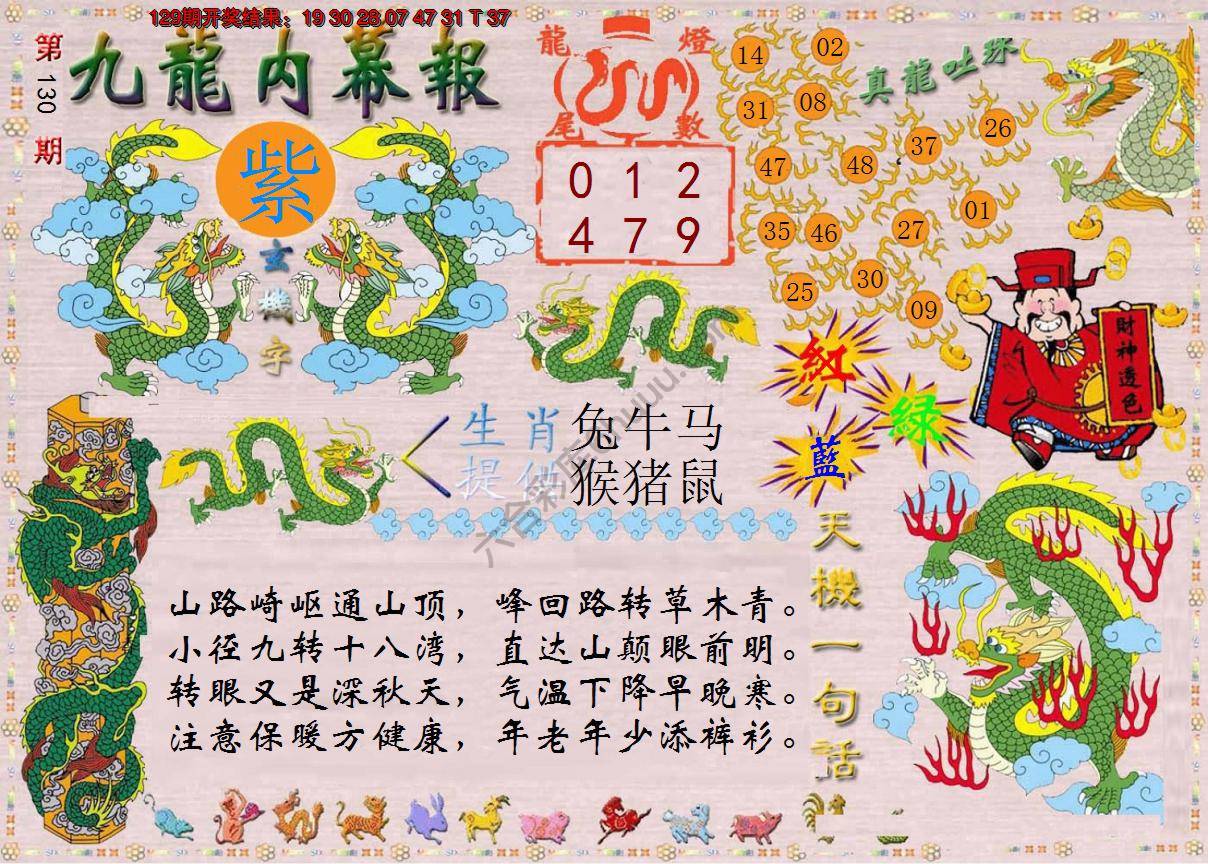 129期开奖结果：19 30 28 07 47 31 T 37
第130期
九龍内幕報
紫
玄機字
龍燈
尾數
0 1 2
4 7 9
真龍吐珠
14 02
31 08
47 48 37 26
35 46 27 01
25 30 09
財神透色
紅
綠
藍
生肖 兔牛马
提供 猴猪鼠
天機一句話
山路崎岖通山顶，峰回路转草木青。
小径九转十八湾，直达山颠眼前明。
转眼又是深秋天，气温下降早晚寒。
注意保暖方健康，年老年少添裤衫。